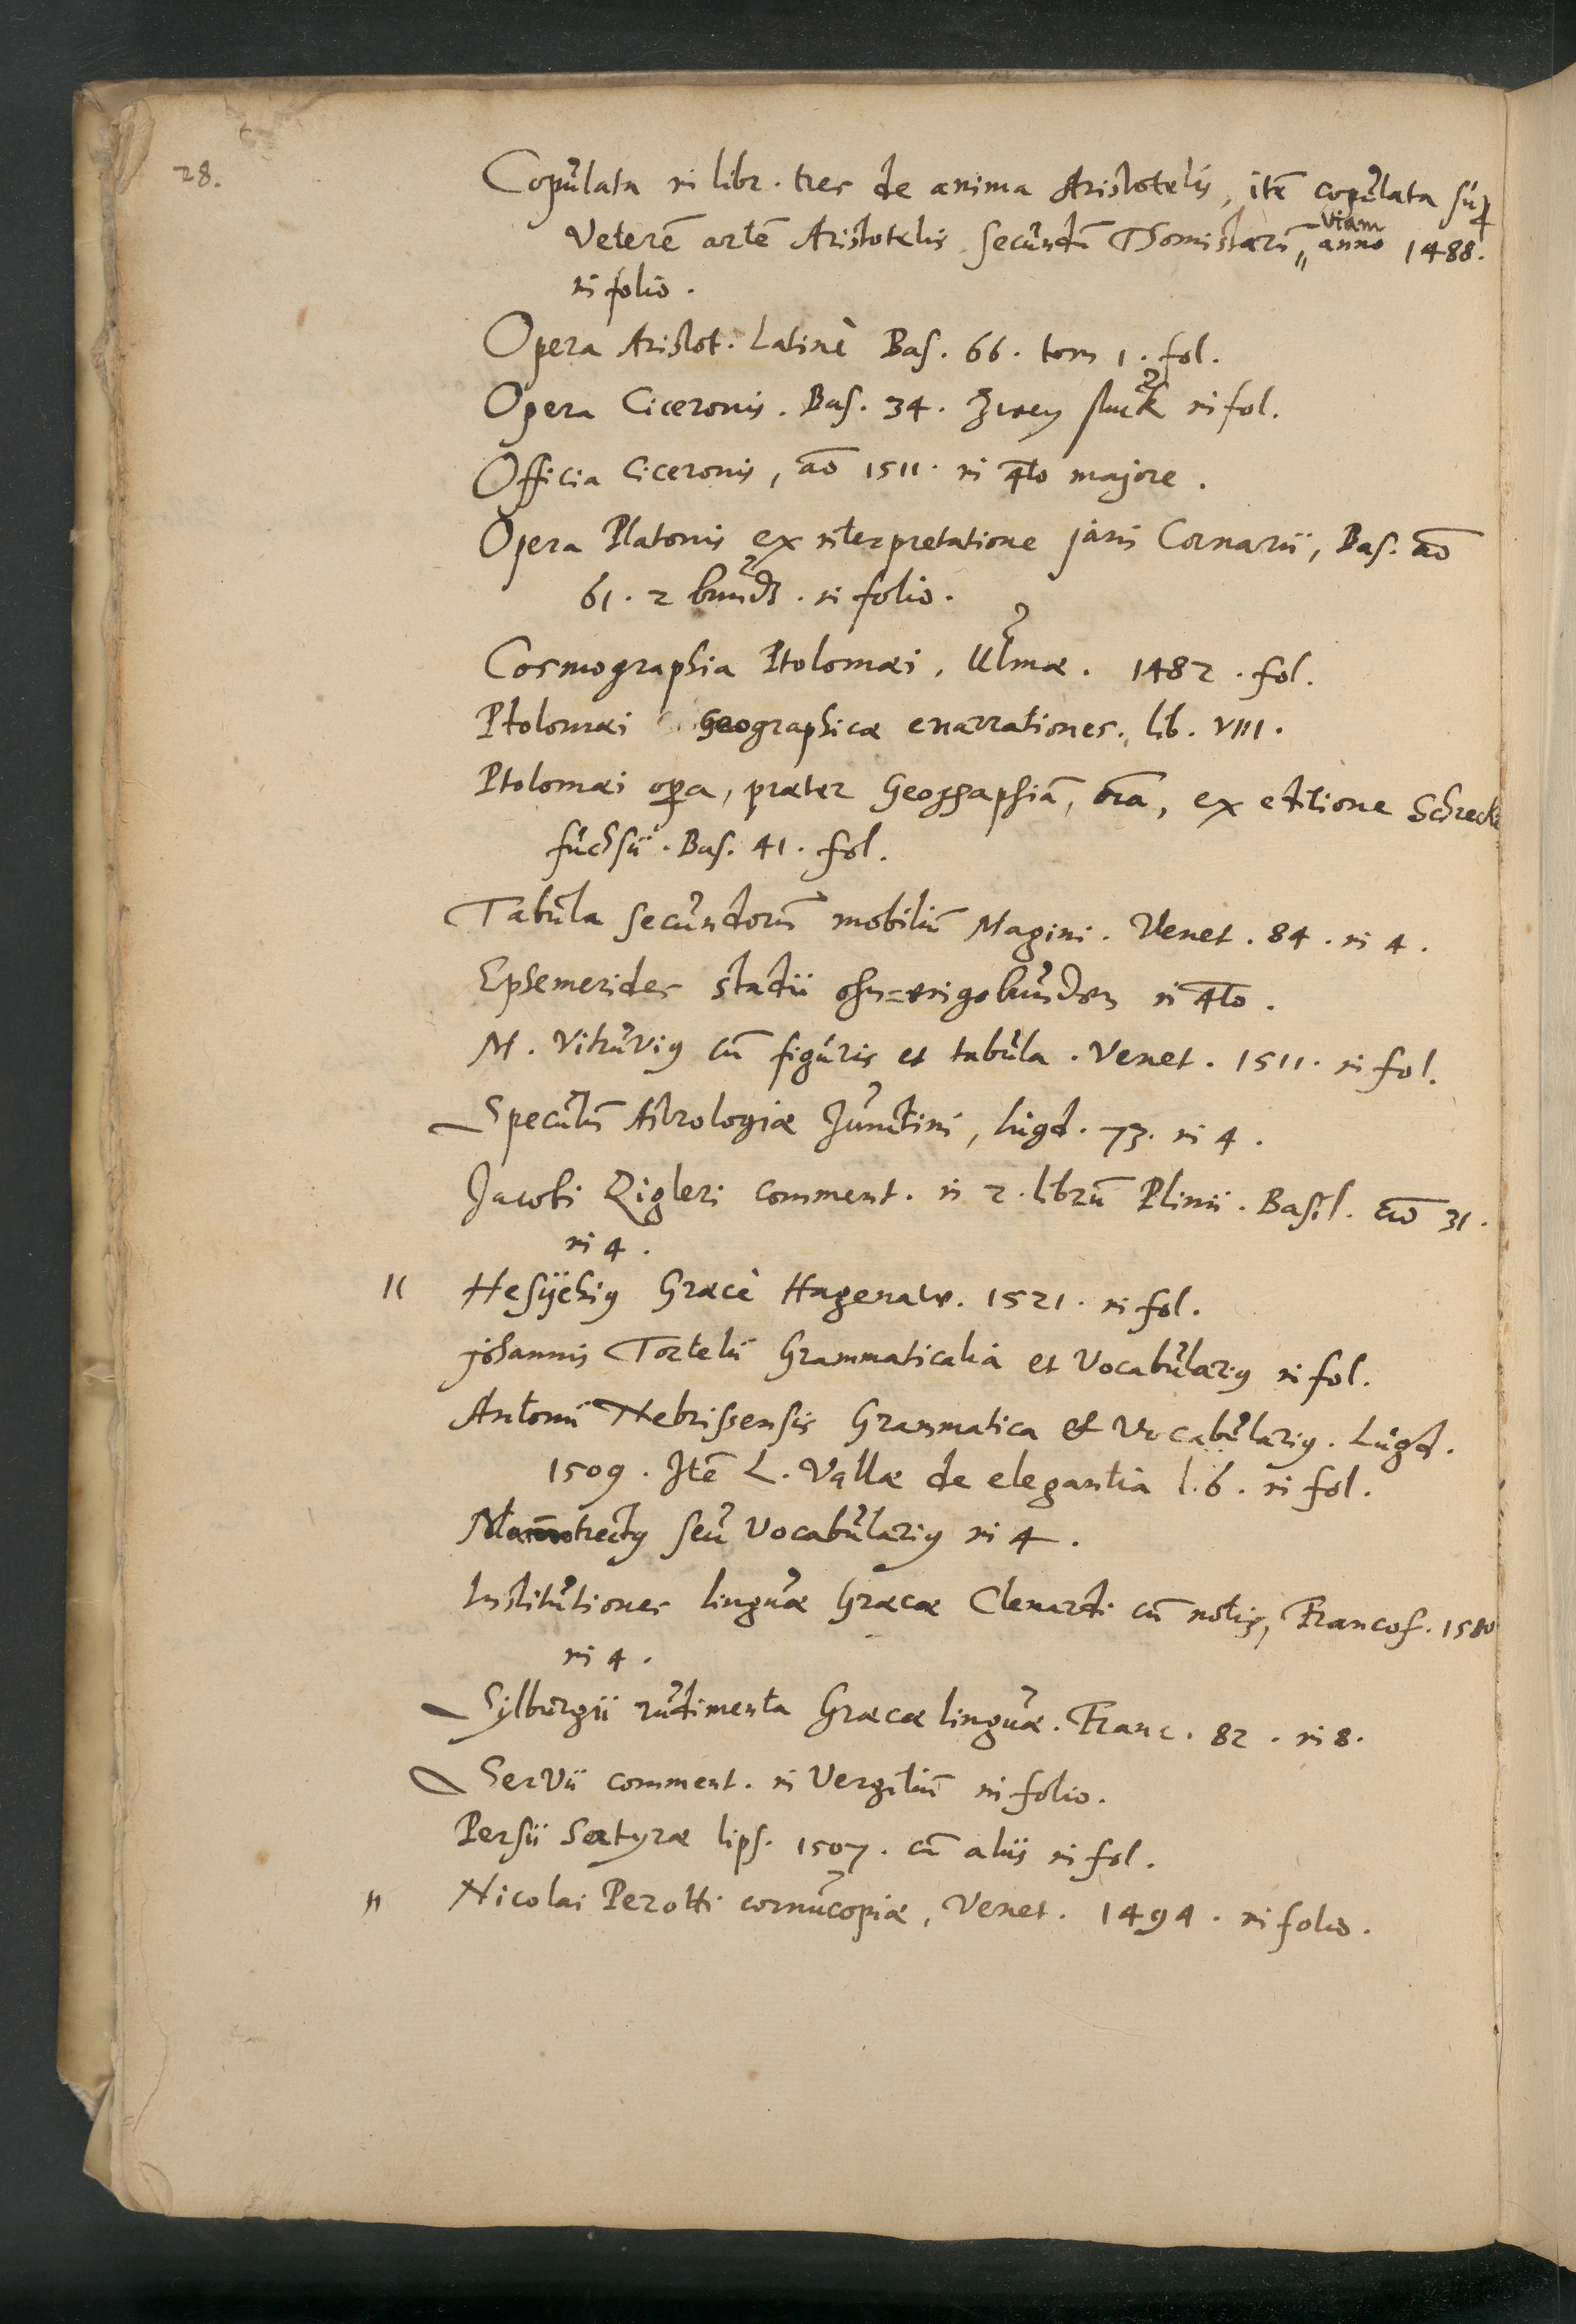 28.
Copulata in libr. tres de anima Aristotelis, itē copulata sup
viam
Veterē artē Aristotelis secundū Thomistarū „ anno 1488.
in folio.
Opera Aristot. Latinè Bas. 66. tom 1. fol.
Opera Ciceronis. Bas. 34. Zwey stuck in fol.
Officia Ciceronis, aō 1511. in 4to majore.
Opera Platonis ex interpretatione jani Cornarii, Bas. aō
61. 2 bunds. in folio.
Cosmographia Ptolomæi, Ulmæ. 1482. fol.
Ptolomæi Geographicæ enarrationes. lib. VIII.
Ptolomæi opa, præter Geographiā, oīa, ex editione Schrecke
fuchsii. Bas. 41. fol.
Tabula secundorū mobiliū Magini. Venet. 84. in 4.
Ephemerides stadii ohn=eingebunden in 4to.
M. Vitruvig cū figuris et tabula. Venet. 1511. in fol.
Speculū Astrologiæ Junctini, lugd. 73. in 4.
Jacobi Zigleri comment. in 2. librū Plinii. Basil. aō 31.
in 4.
" Hesÿchig Græcè Hagenaw. 1521. in fol.
johannis Tortelii Grammaticalia et Vocabularig in fol.
Antonii Nebrissensis Grammatica et Vocabularig. Lugd.
1509. Itē L. Vallæ de elegantia l. 6. in fol.
Mamotrectg seu Vocabularig in 4.
Institutiones linguæ Græcæ Clenardi cū notis, Francof. 1580
in 4.
Sylburgii rudimenta Græcæ linguæ. Franc. 82. in 8.
Servii comment. in Vergiliū in folio.
Persii Satyræ lips. 1507. cū aliis in fol.
" Nicolai Perotti cornucopiæ, Venet. 1494. in folio.